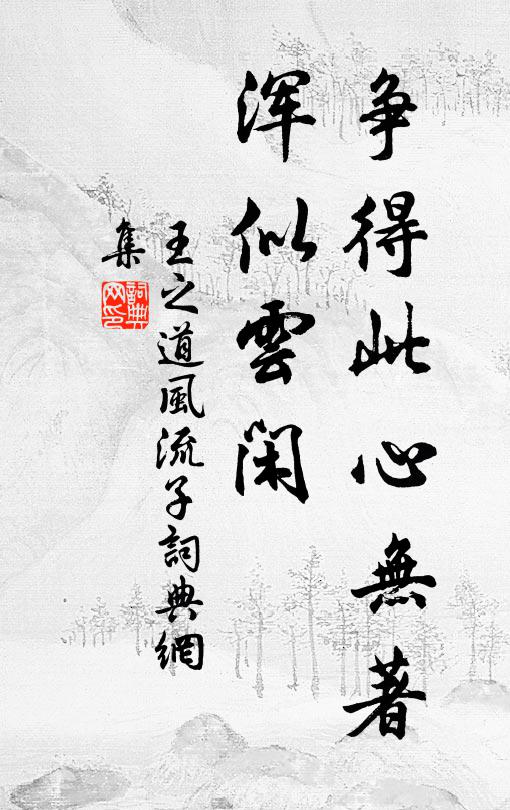 争得此心無著
浑似雲閑
王之道風流子詞典網
集
詞典
网印